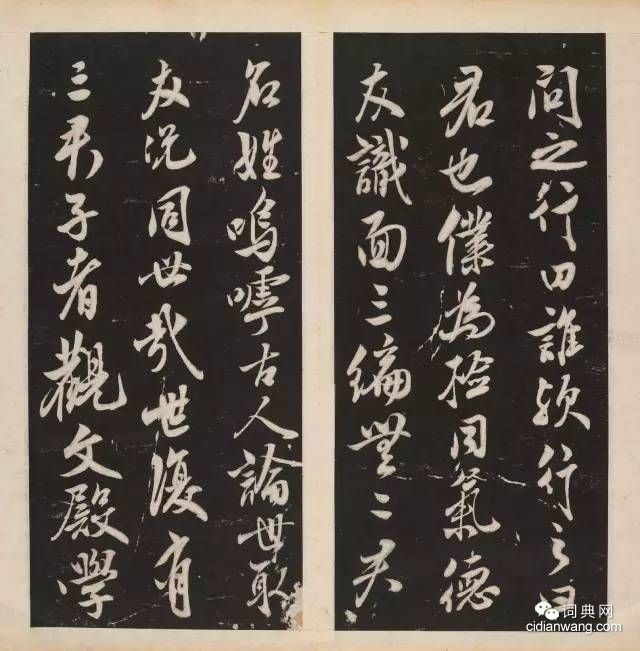 問之行曰誰欤行之曰
君也僕為檢同氣德
友識面三編無二夫
名姓嗚嘑古人論世取
友况同世哉世復有
三平子者觀文殿學
词典网
cidianwang.com